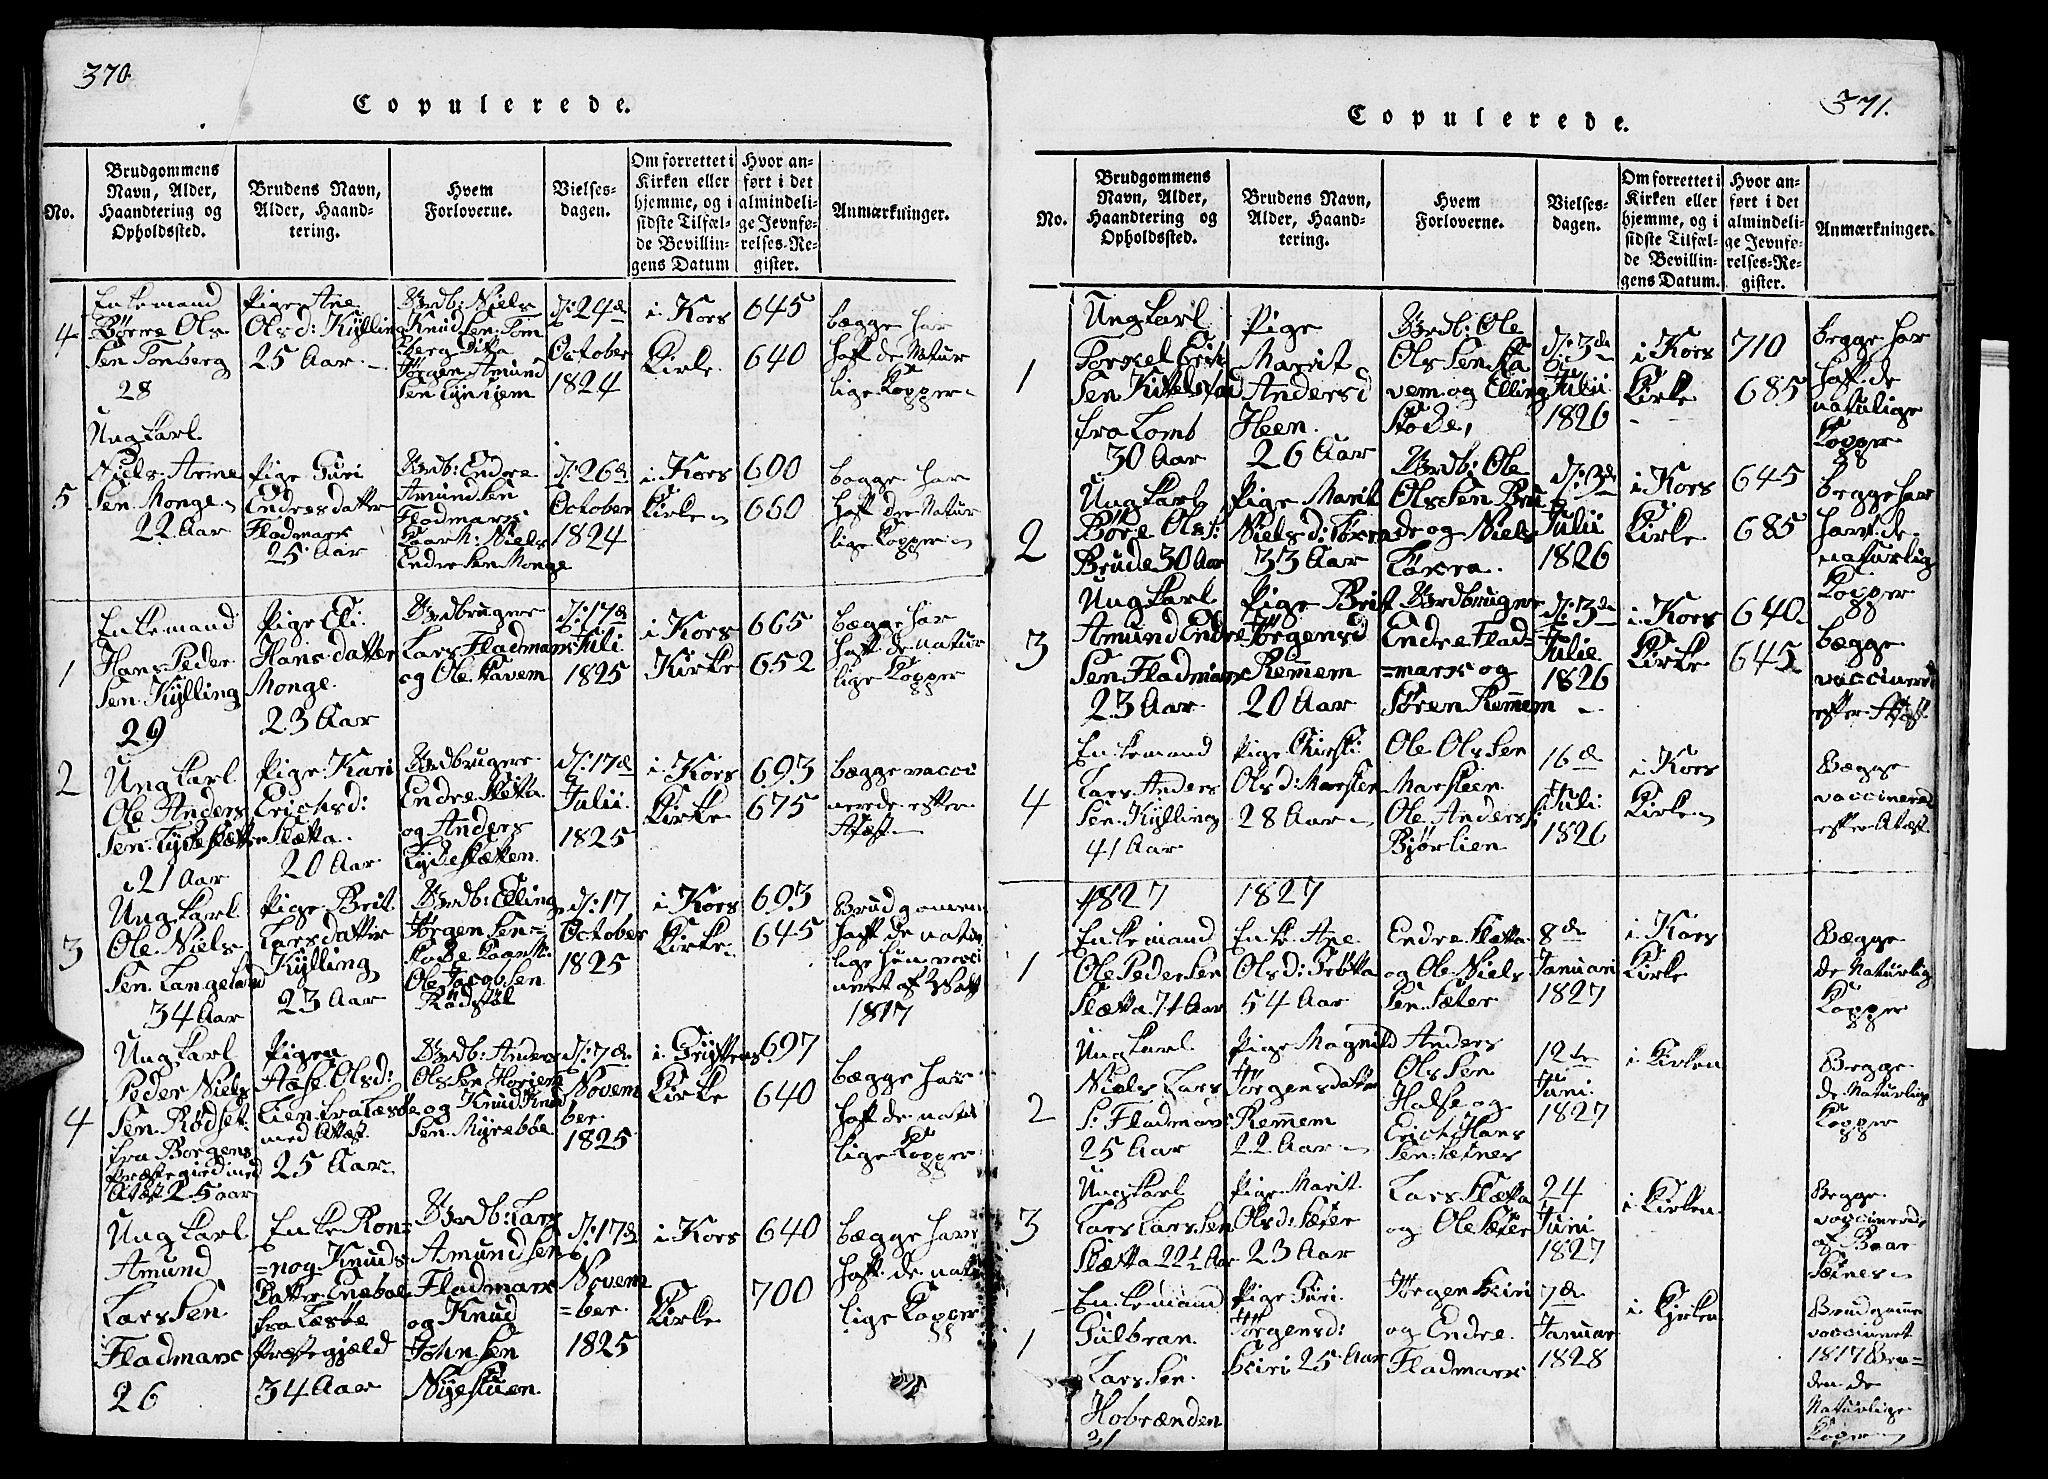 370.
Copulerede.
No.
Brudgommens
Navn, Alder,
Haandtering og
Opholdssted.
Brudens Navn,
Alder, Haand-
tering.
Hvem
Forloverne.
Vielses-
dagen.
Om forrettet i
Kirken eller
hjemme, og i
sidste Tilfæl-
de Bevillin-
gens Datum
Hvor an-
ført i det
almindeli-
ge Jevnfø-
relses-Re-
gister.
Anmærkninger.
4
Enkemand
Börre Ols
Sen Tonberg
28
Pige Ane
Olsd: Kylling
25 Aar
Brdb: Niels
Knudsen Ton
berg Ditto
Jörgen Amund
Sen
d: 24de
October
1824
i Kors
Kirke
645
640
begge har
haft de Natur
lige Kopper
5
Ungkarl
Niels Arne
Sen Monge
22 Aar
Pige Guri
Endresdatter
Fladmark
25 Aar
Brdb: Endre
Amundsen
Fladmark
Niels
Endresen Monge
d: 26de
October
1824
i Kors
Kirke
600
660
begge har
haft de Natur
lige Kopper
1
Enkemand
Hans Peder
Sen Kylling
29
Pige Eli
Hansdatter
Monge
23 Aar
Brdbrugere
Lars Fladmark
og Ole Kavem
d: 17de
Juli
1825
i Kors
Kirke
665
652
begge har
haft de natur
lige Kopper
2
Ungkarl
Ole Anders
Sen
21 Aar
Pige Kari
Erichsd:
Slætta
20 Aar
Brdbrugere
Endre Slætta
og Anders
d: 17de
Julii
1825
i Kors
Kirke
693
675
begge vacci
nerede efter
Attest
3
Ungkarl
Ole Niels
Sen Langeland
34 Aar
Pige Brit
Larsdatter
Kylling
23 Aar
Brdb: Elling
Jörgensen
Ole Jacobsen
Rödstöl
d: 17
October
1825
i Kors
Kirke
693
645
Brudgommen
haft de natur
lige hun vacci
neret af
1817
4
Ungkarl
Peder Niels
Sen Rödset
fra Borgens
Præstegield med
Attest 25 aar
Pigen
Aase Olsd:
Lien fra Lesöe
med Attest
25 Aar
Brdb: Anders
Olsen Horjem
og Knud Knud
Sen Myreböe
d: 7de
Novem
ber
1825
i Gryttens
Kirke
697
640
begge har
haft de natur
lige Kopper
Ungkarl
Amund
Larssen
Fladmark
26
Enke Ron=
=nog Knuds
Datter Eneboe
fra Lesöe
Præstegjæld
34 Aar
Brdb: Lars
Amundsen
Fladmark
og Knud
Johnsen
Nysestuen
d: 17de
Novem
=ber
1825
i Kors
Kirke
640
700
begge have
haft de natur
lige Kopper
371.
Copulerede.
No.
Brudgommens
Navn, Alder,
Haandtering og
Opholdssted.
Brudens Navn,
Alder, Haand-
tering.
Hvem
Forloverne.
Vielses-
dagen.
Om forrettet i
Kirken eller
hjemme, og i
sidste Tilfæl-
de Bevillin-
gens Datum.
Hvor an-
ført i det
almindeli-
ge Jevnfø-
relses-Re-
gister.
Anmærkninger.
1
Ungkarl
Torkel Erik
Sen
fra Lomb
30 Aar
Pige
Marit
Andersd
Heen
26 Aar
Brdb: Ole
Olsen Ka
vem og Elling
Stode
d: 3de
Julii
1826
i Kors
Kirke
710
685
begge har
haft de
naturlige
Kopper
2
Ungkarl
Böre Ols:
Brude 30 Aar
Pige Marit
Nielsd:
33 Aar
Brdb: Ole
Olssen Bru
de og Niels
d: 3de
Julii
1826
i Kors
Kirke
645
685
begge har
havt de
naturlig
Kopper
3
Ungkarl
Amund Endre
Sen Fladmark
23 Aar
Pige Brit
Jörgensd
Remmem
20 Aar
Brdbrugere
Endre Flad=
=mark og
Sören Remmem
d: 3de
Julie
1826
i Kors
Kirke
640
645
begge
vaccinered
efter Attest
4
Enkemand
Lars Anders
Sen Kylling
41 Aar
Pige Chirsti
Olsd: Marstein
28 Aar
Ole Olssen
Marsteen
Ole Anders:
Bjørlien
16de
Juli
1826
i Kors
Kirke
Begge
vaccinered
efter Attest
1827
1827
1
Enkemand
Ole Pedersen
Slætta 74 Aar
Enke Ane
Olsd: Grötta
54 Aar
Endre Slætta
og Ole Niels
Sen Sæter
8de
Januari
1827
i Kors
Kirke
Begge
de Naturlig
Kopper
2
Ungkarl
Niels Lars
S: Fladmark
25 Aar
Pige Magnild
Jörgensdatter
Remmem
22 Aar
Anders
Olssen
Halse og
Erich Hans
Sen Sætnes
12te
Juni
1827
i Kirken
Begge
de Naturlige
Kopper
3
Ungkarl
Lars Larssen
Slætta 22½ Aar
Pige Marit
Olsd: Sæter
23 Aar
Lars Slætta
og Ole Sæter
24
Juni
1827
i Kirken
Begge
vaccinered
af Boar
Sætnes
1
Enkemand
Gulbran
Larssen
Hobrænden
31
Pige Guri
Jörgensd:
Skiri 25 Aar
Jörgen Skiri
og Endre
Fladmark
7de
Januar
1828
i Kirken
Brudgommen
vaccineret
1817 Bru=
den de
Naturlige
Kopper